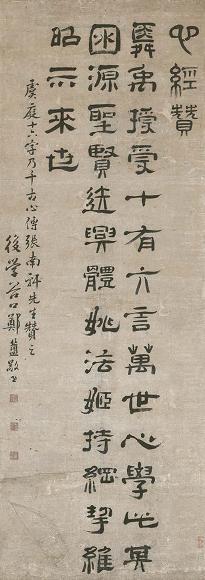 心經贊
舜禹授受十有六言萬世心學此其
淵源聖賢迭興體姚法姬持綱挈維
昭示來世
虞庭十六字乃千古心傳張南軒先生贊之
後學谷口鄭簠敬書